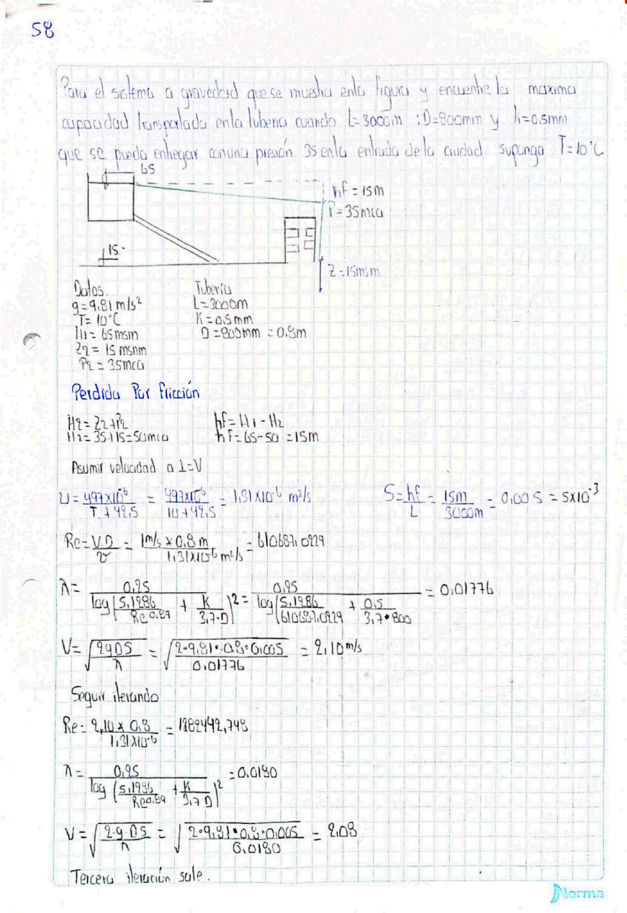 58
Para el sistema a gravedad que se muestra en la figura y encuentre la maxima
capacidad transportada en la tuberia cuando L=3000m ; D=800mm y K=0.5mm
que se pueda entregar con una presión 35 en la entrada de la ciudad suponga T=10°C
65
hf=15m
P=35mca
15.
Z=15msm
Datos. Tuberia
g=9,81 m/s² L=3000m
T=10°C K=0,5mm
H1=65msm D=800mm=0.8m
Z2=15 msnm
P2=35mca
Perdida Por fricción
H2=Z2+P2 hf=H1-H2
H2=35+15=50mca hf=65-50=15m
Asumir velocidad a 1=V
U=497x10⁻⁶/T+42,5 = 497x10⁻⁶/10+42,5 = 1,31x10⁻⁶ m²/s S=hf/L=15m/3000m=0,005=5x10⁻³
Re=VD/v=1m/s x 0.8m/1,31x10⁻⁶ m²/s=610687,0229
λ=0.25/log(5,1286/Re^0.89 + K/3,7·D)²=0.25/log(5.1286/610687,0229 + 0.5/3.7•800)=0.01776
V=√(2gDS/λ)=√(2•9.81•0.8•0.005/0.01776)=2,10m/s
Seguir iterando
Re=2,10 x 0.8/1,31x10⁻⁶=1282442,748
λ=0.25/log(5.1286/Re^0.89 + K/3,7 D)²=0.0180
V=√(2·g·DS/λ)=√(2•9.81•0.8•0.005/0.0180)=2,08
Tercera iteración sale.
Norma